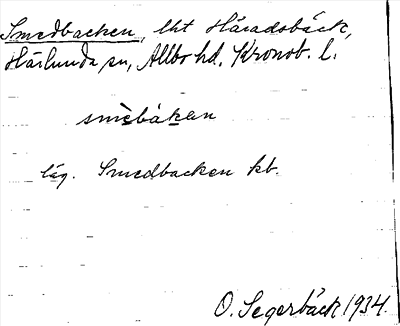 Smedbacken, lht Häradsbäck,
Härlunda sn, Allbo hd, Kronob. l.
smèbákan
läg. Smedbacken kb.
O. Segerbäck 1934.